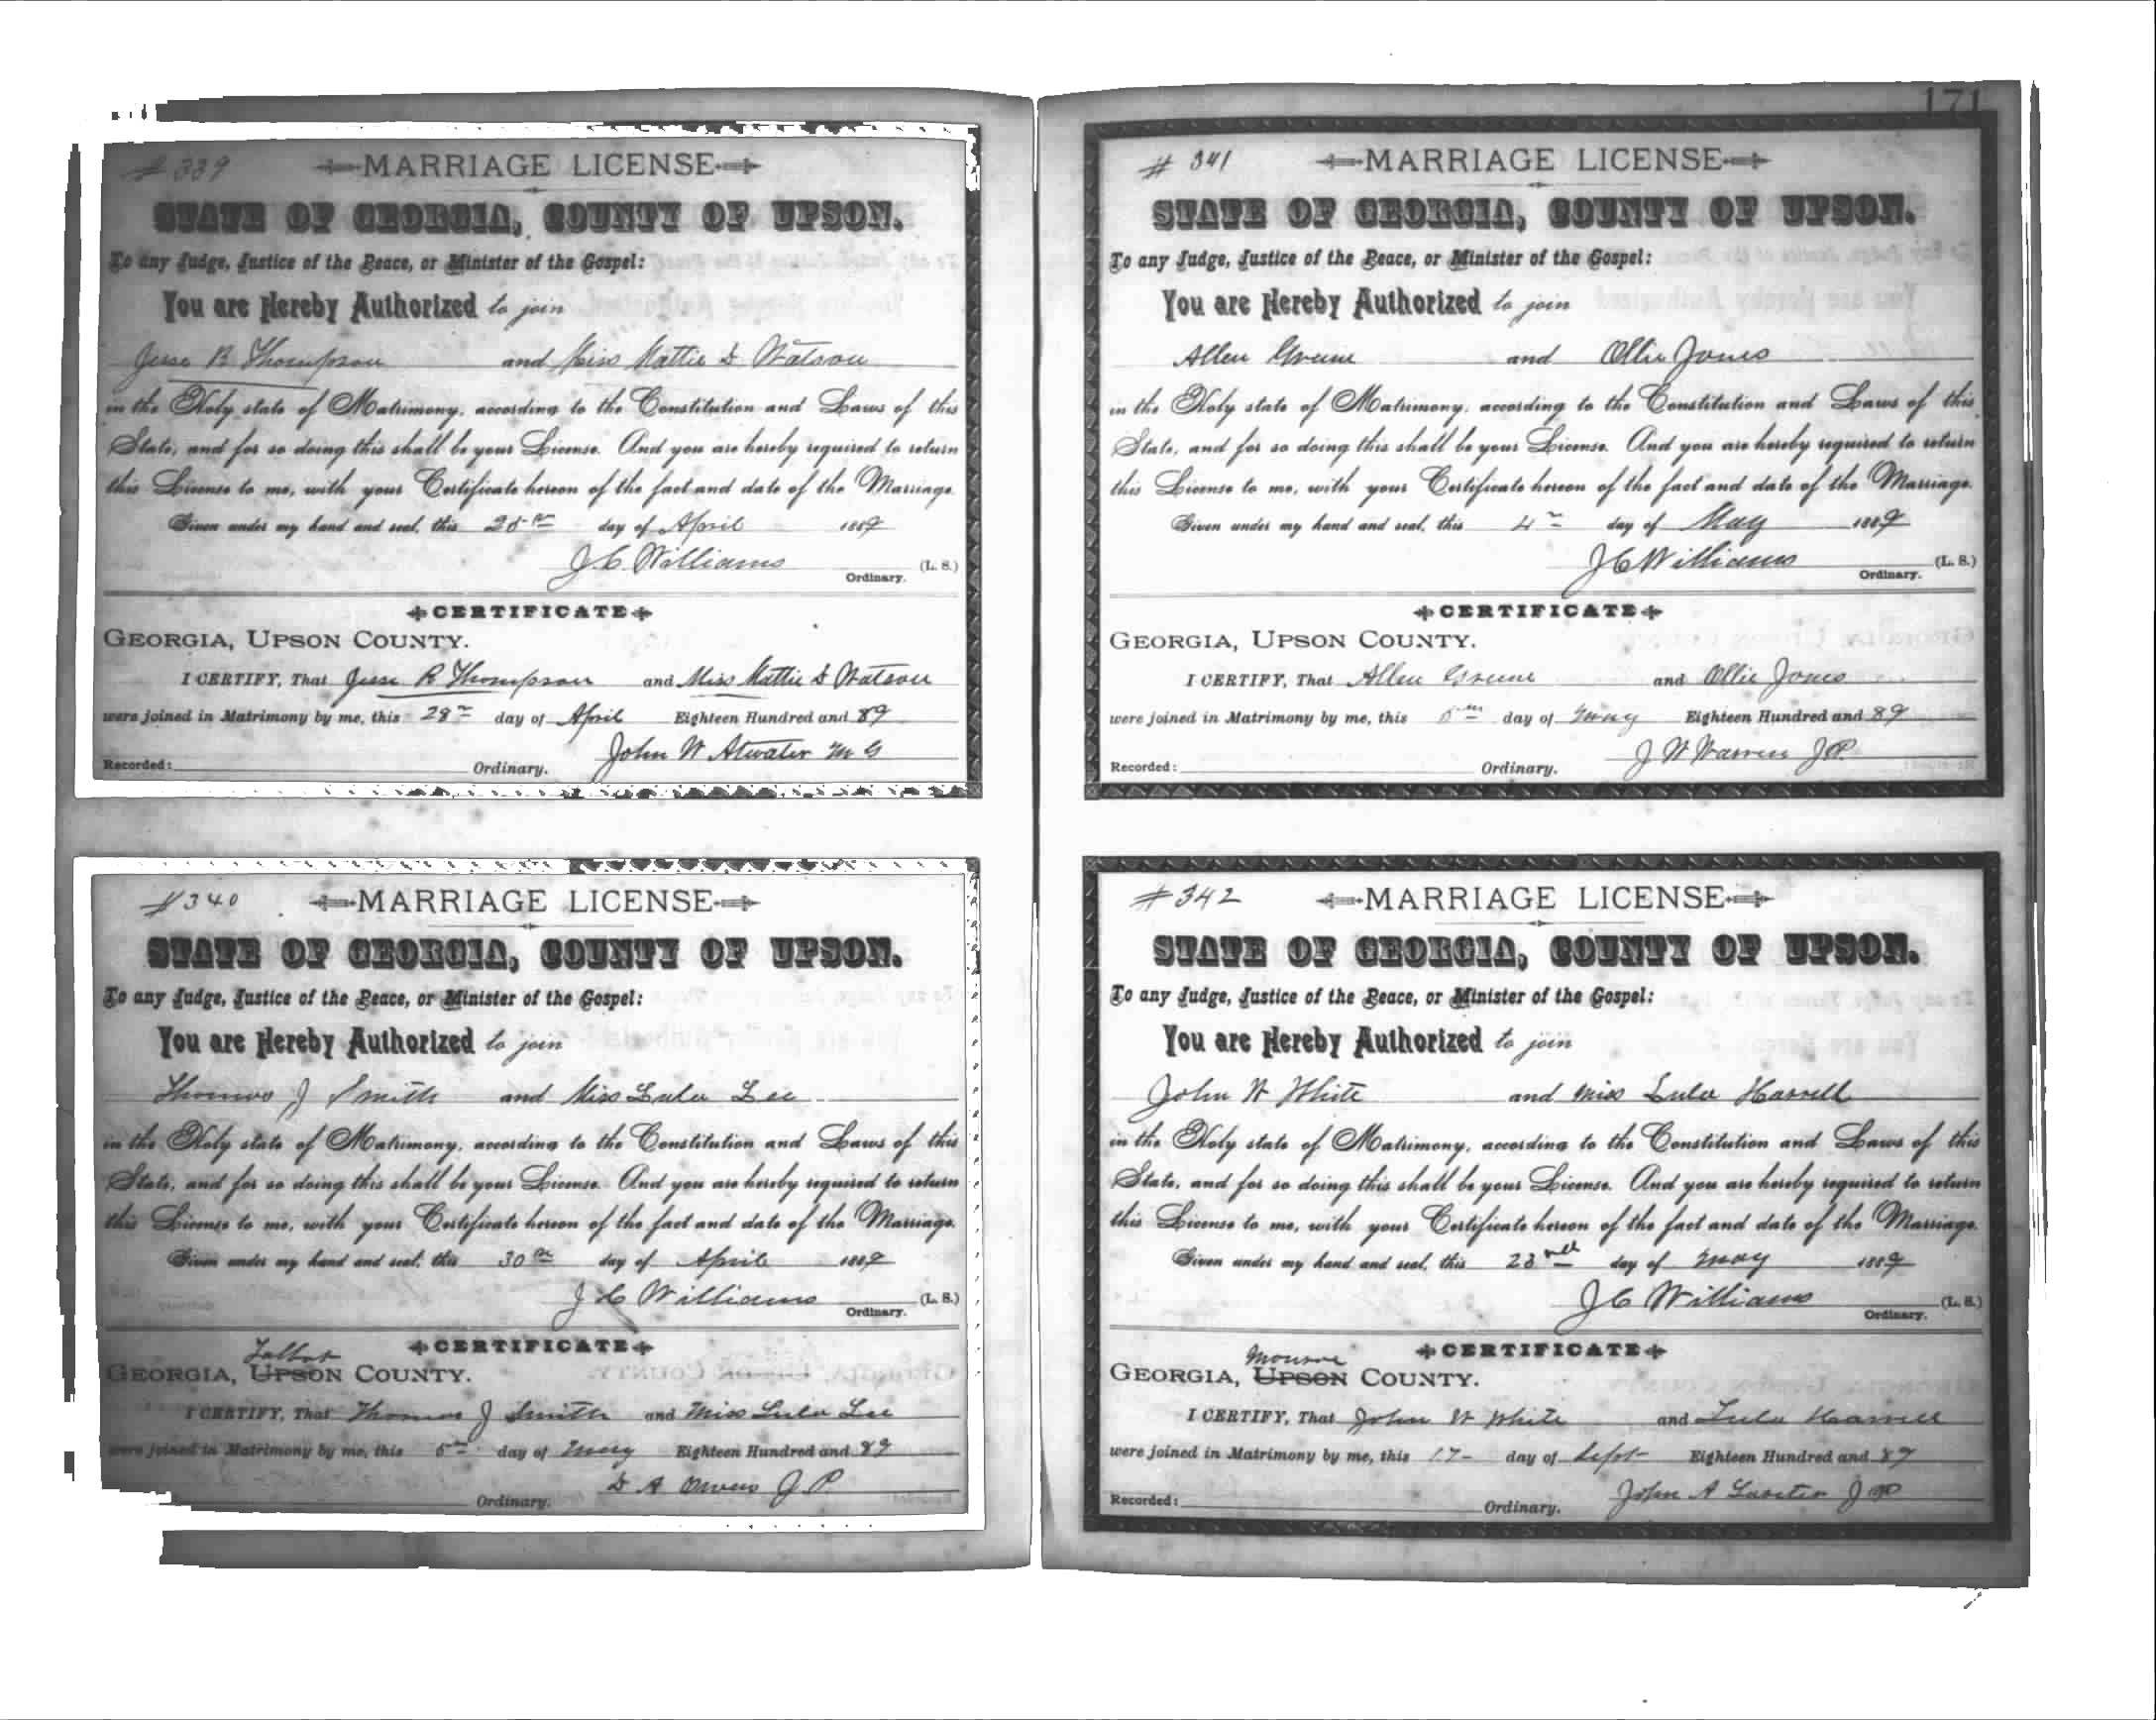 # 339 MARRIAGE LICENSE
STATE OF GEORGIA, COUNTY OF UPSON.
To any Judge, Justice of the Peace, or Minister of the Gospel:
You are Hereby Authorized to join
Jesse B Thompson and Miss Mattie D Watson
in the Holy state of Matrimony, according to the Constitution and Laws of this
State, and for so doing this shall be your License. And you are hereby required to return
this License to me, with your Certificate hereon of the fact and date of the Marriage.
Given under my hand and seal, this day of April 1889
J. C. Williams (L. S.)
Ordinary.
CERTIFICATE
GEORGIA, UPSON COUNTY.
I CERTIFY, That Jesse B Thompson and Miss Mattie D Watson
were joined in Matrimony by me, this 28th day of April Eighteen Hundred and 89
John W Atwater M G
Recorded: Ordinary.
# 340 MARRIAGE LICENSE
STATE OF GEORGIA, COUNTY OF UPSON.
To any Judge, Justice of the Peace, or Minister of the Gospel:
You are Hereby Authorized to join
Thomas J Smith and Miss Lula Lee
in the Holy state of Matrimony, according to the Constitution and Laws of this
State, and for so doing this shall be your License. And you are hereby required to return
this License to me, with your Certificate hereon of the fact and date of the Marriage.
Given under my hand and seal, this 30th day of April 1889
J C Williams (L. S.)
Ordinary.
CERTIFICATE
Talbot
GEORGIA, UPSON COUNTY.
I CERTIFY, That Thomas J Smith and Miss Lula Lee
were joined in Matrimony by me, this 5th day of May Eighteen Hundred and 89
D A Owens J P
Ordinary.
171
# 341 MARRIAGE LICENSE
STATE OF GEORGIA, COUNTY OF UPSON.
To any Judge, Justice of the Peace, or Minister of the Gospel:
You are Hereby Authorized to join
Allen Greene and Ollie Jones
in the Holy state of Matrimony, according to the Constitution and Laws of this
State, and for so doing this shall be your License. And you are hereby required to return
this License to me, with your Certificate hereon of the fact and date of the Marriage.
Given under my hand and seal, this 4th day of May 1889
J C Williams (L. S.)
Ordinary.
CERTIFICATE
GEORGIA, UPSON COUNTY.
I CERTIFY, That Allen Greene and Ollie Jones
were joined in Matrimony by me, this 5th day of May Eighteen Hundred and 89
J W Warren J.P.
Recorded: Ordinary.
# 342 MARRIAGE LICENSE
STATE OF GEORGIA, COUNTY OF UPSON.
To any Judge, Justice of the Peace, or Minister of the Gospel:
You are Hereby Authorized to join
John W White and Miss Lula Harrell
in the Holy state of Matrimony, according to the Constitution and Laws of this
State, and for so doing this shall be your License. And you are hereby required to return
this License to me, with your Certificate hereon of the fact and date of the Marriage.
Given under my hand and seal, this day of May 1889
J C Williams (L. S.)
Ordinary.
CERTIFICATE
Monroe
GEORGIA, UPSON COUNTY.
I CERTIFY, That John W White and Lula Harrell
were joined in Matrimony by me, this 17- day of Sept- Eighteen Hundred and 89
John A J P
Recorded: Ordinary.